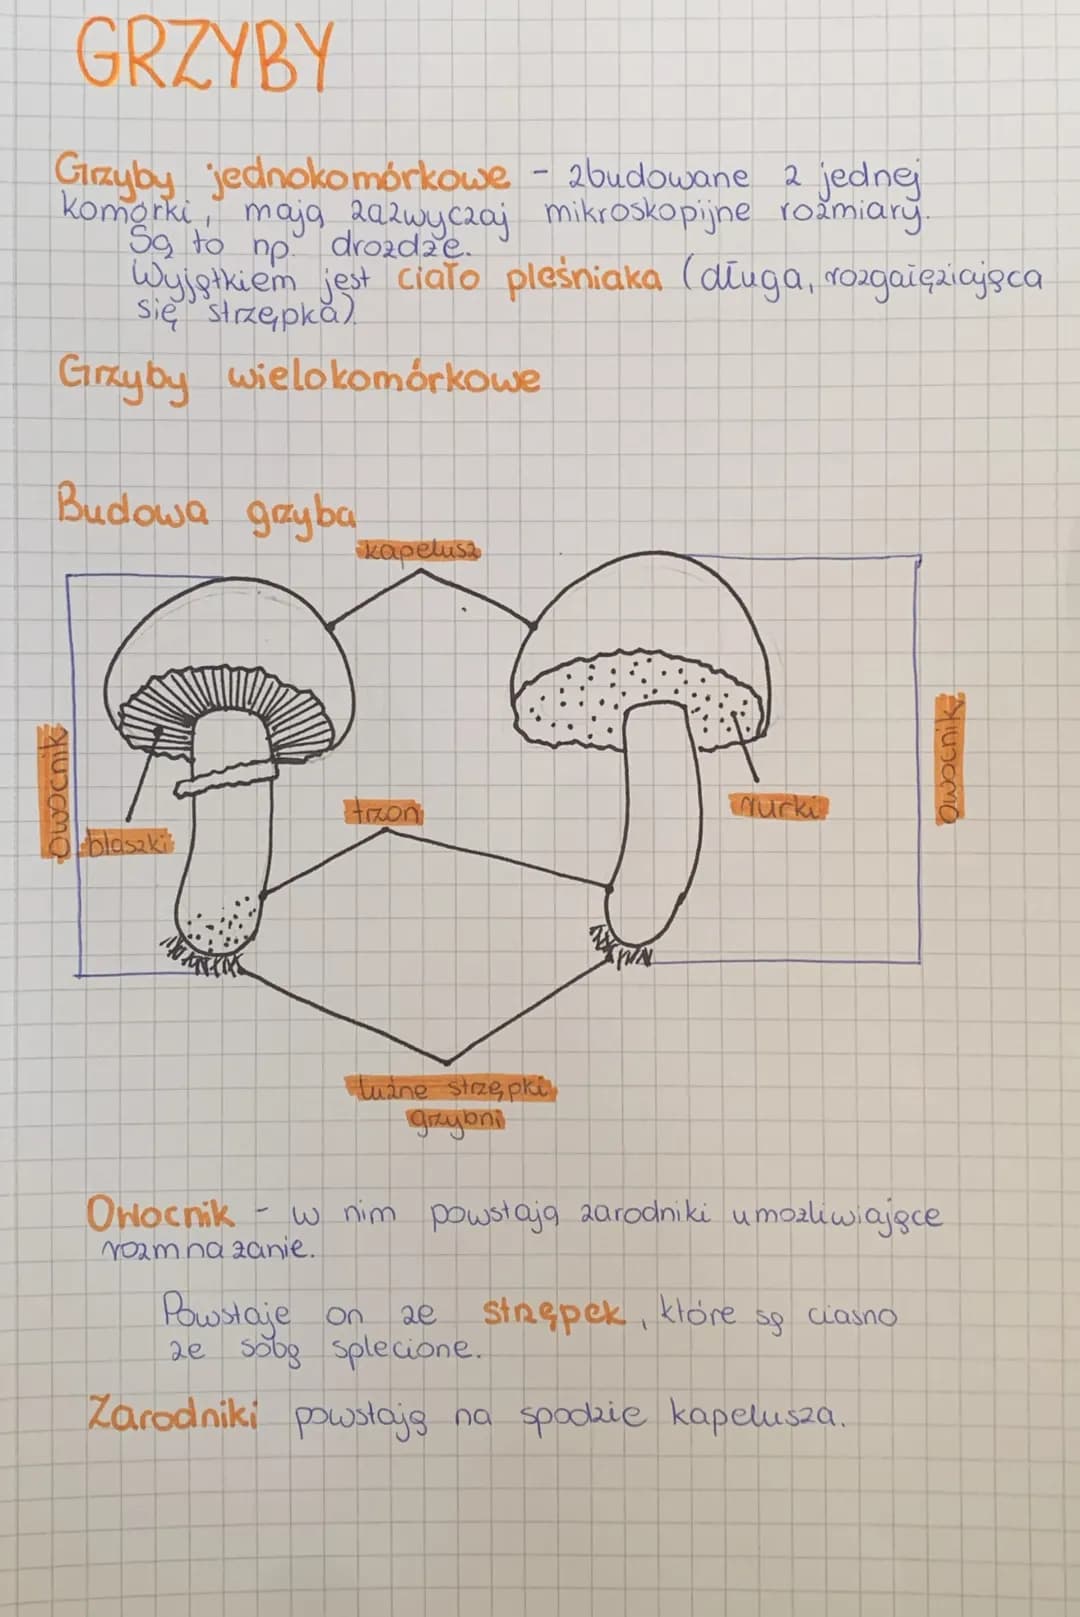 GRZYBY
Grzyby jednokomórkowe - zbudowane z jednej
komórki, mają zazwyczaj mikroskopijne rozmiary.
Są to np. drożdże.
Wyjątkiem jest ciało pleśniaka (długa, rozgałęziająca
się strzępka).
Grzyby wielokomórkowe
Budowa grzyba
kapelusz
owocnik
owocnik
blaszki
trzon
rurki
luźne strzępki
grzybni
Owocnik - w nim powstają zarodniki umożliwiające
rozmnażanie.
Powstaje on ze strzępek, które są ciasno
ze sobą splecione.
Zarodniki powstają na spodzie kapelusza.